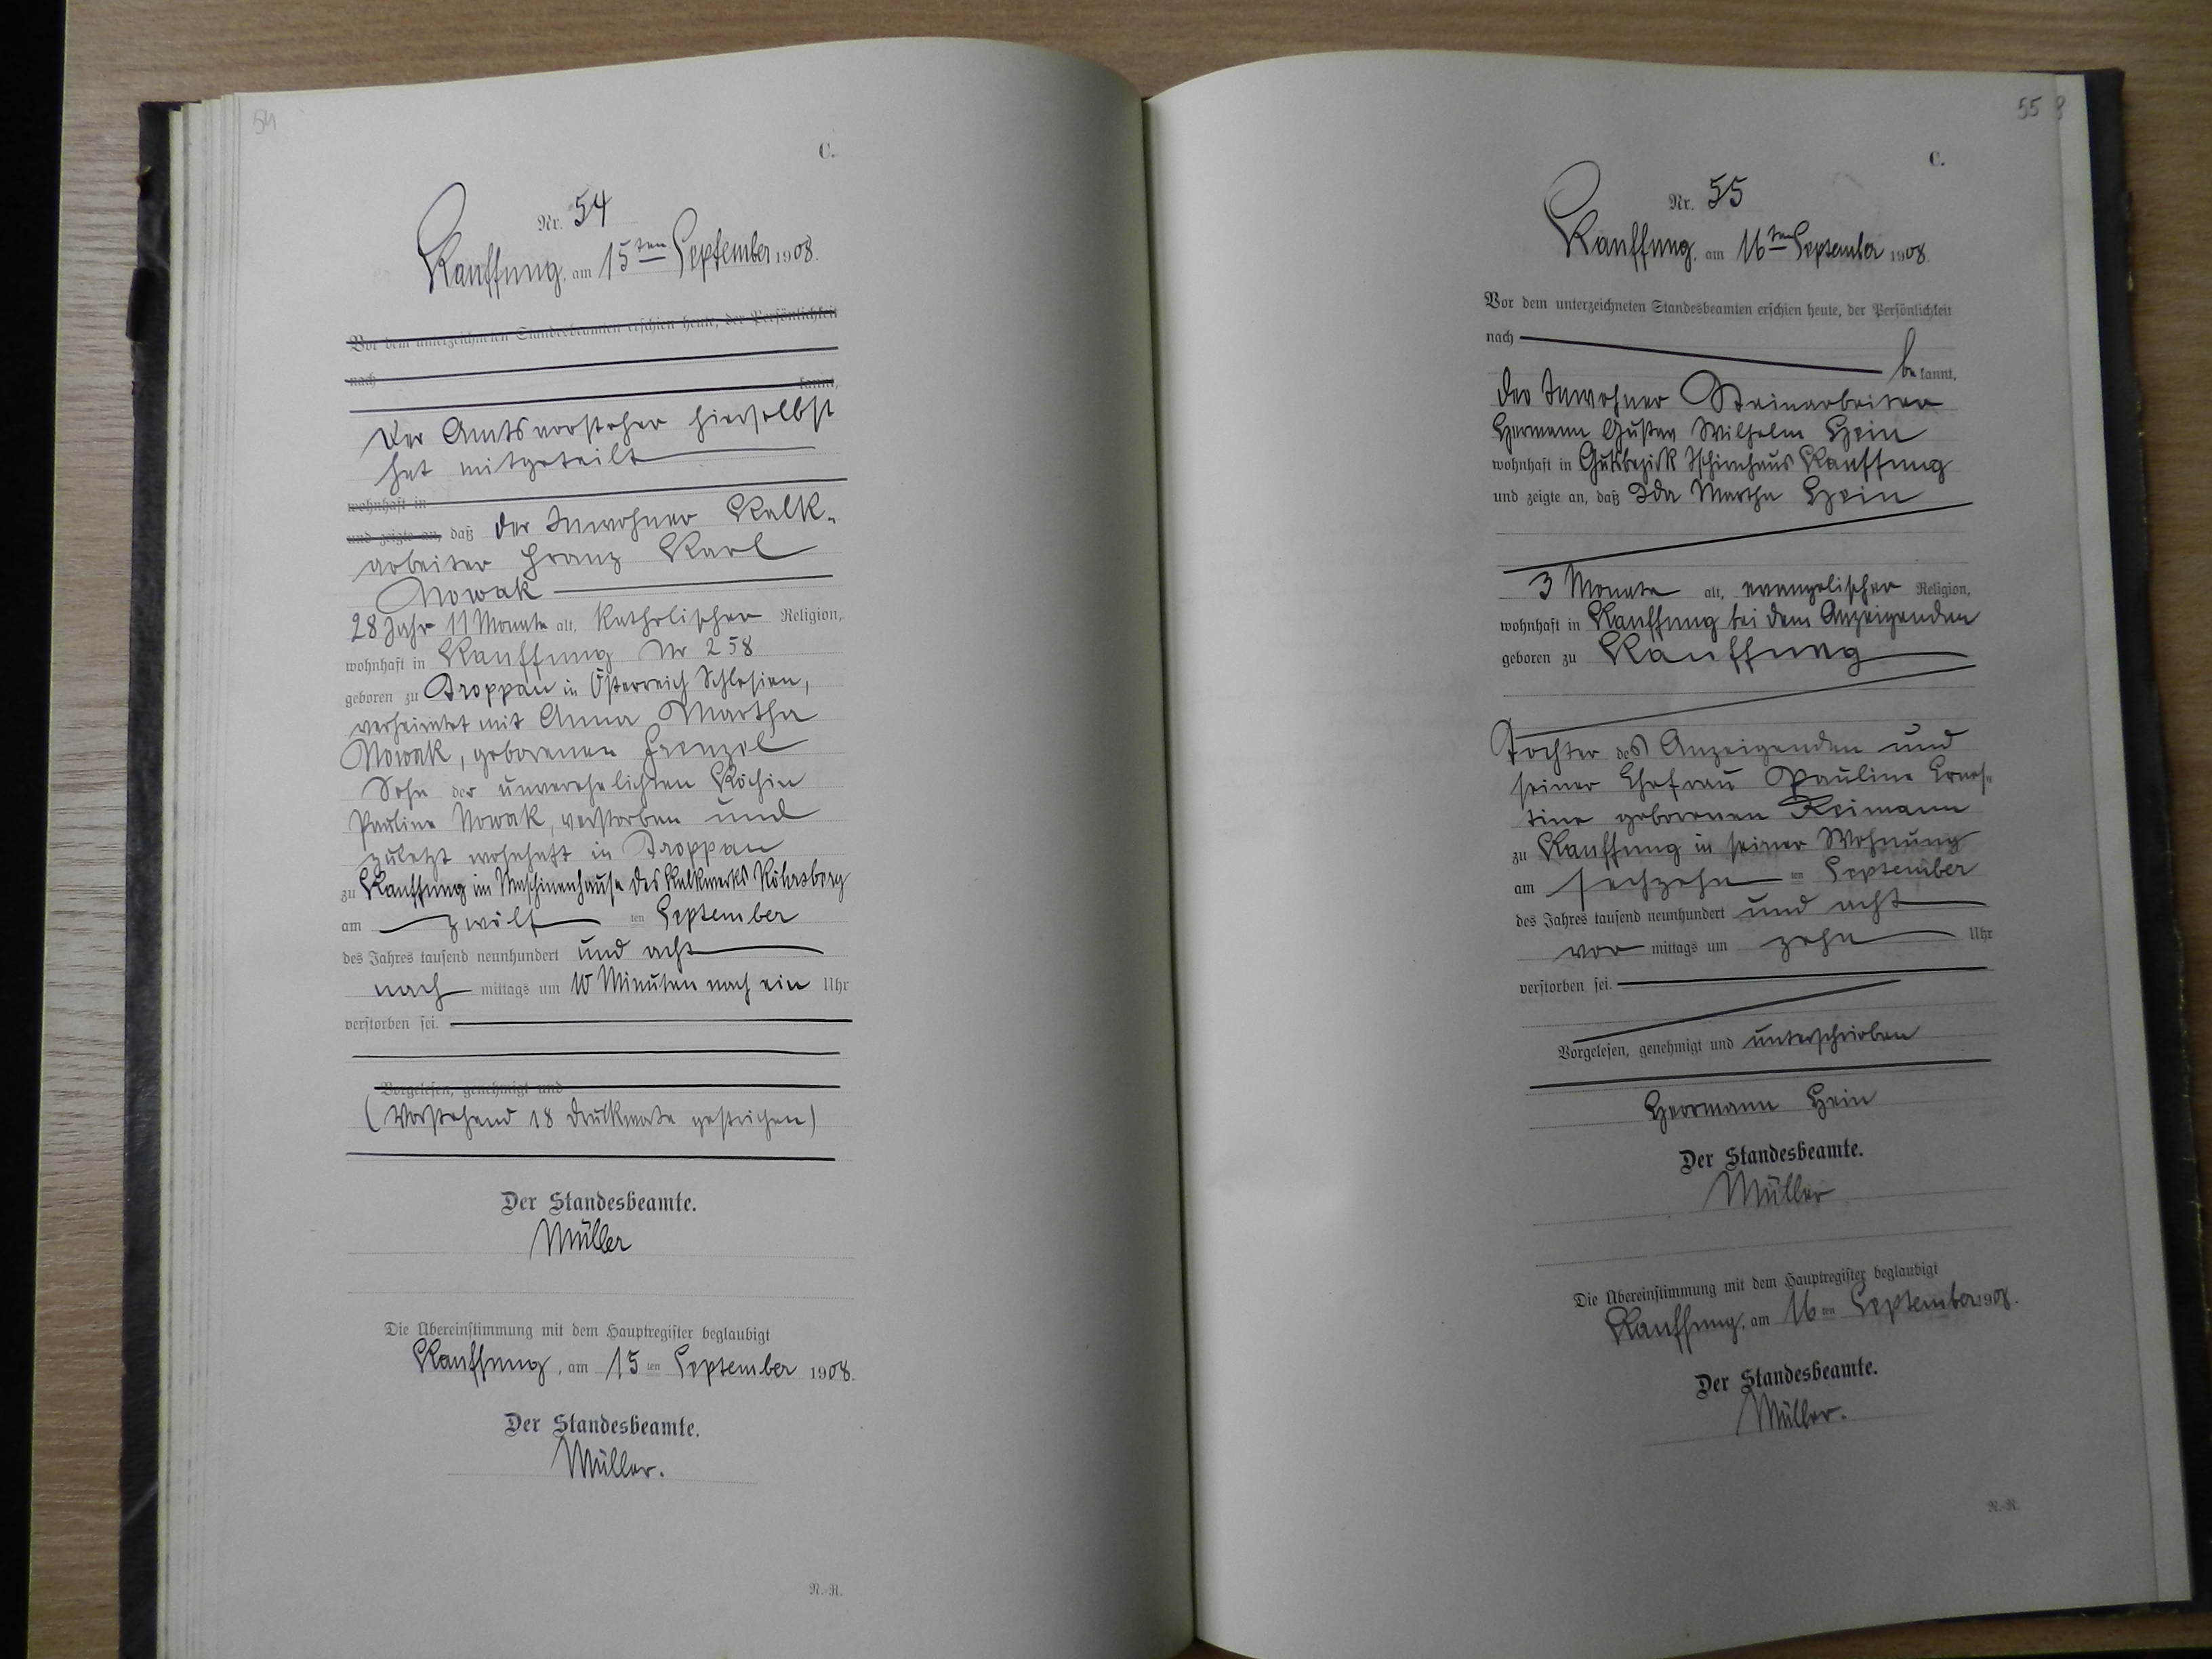 54
C.
Nr. 54
Kauffung, am 15ten September 1908.
Vor dem unterzeichneten Standesbeamten erschien heute, der Persönlichkeit
nach
kannt,
Der Amtsvorsteher hierselbst
hat mitgeteilt
wohnhaft in
und zeigte an, daß der Inwohner Kalk-
arbeiter Franz Karl
Nowak
28 Jahr 11 Monate alt, katholischer Religion,
wohnhaft in Kauffung Nr 258
geboren zu Troppau in Österreich Schlesien,
verheiratet mit Anna Martha
Nowak, geborenen Frenzel
Sohn der unverehelichten Köchin
Pauline Nowak, verstorben und
zuletzt wohnhaft in Troppau
zu Kauffung im Maschinenhause des Kalkwerks Röhrsberg
am zwölf ten September
des Jahres tausend neunhundert und acht
nach mittags um 10 Minuten nach ein Uhr
verstorben sei.
Vorgelesen, genehmigt und
(Vorstehend 18 Druckworte gestrichen)
Der Standesbeamte.
Müller
Die Übereinstimmung mit dem Hauptregister beglaubigt
Kauffung, am 15 ten September 1908.
Der Standesbeamte.
Müller.
N.-R.
55
C.
Nr. 55
Kauffung, am 16ten September 1908.
Vor dem unterzeichneten Standesbeamten erschien heute, der Persönlichkeit
nach
be kannt,
der Inwohner Steinarbeiter
Hermann Gustav Wilhelm Hein
wohnhaft in Gutsbezirk Tschirnhaus Kauffung
und zeigte an, daß Ida Martha Hein
3 Monate alt, evangelischer Religion,
wohnhaft in Kauffung bei dem Anzeigenden
geboren zu Kauffung
Tochter des Anzeigenden und
seiner Ehefrau Pauline Ernes-
tine geborenen Reimann
zu Kauffung in seiner Wohnung
am sechzehn ten September
des Jahres tausend neunhundert und acht
vor mittags um zehn Uhr
verstorben sei.
Vorgelesen, genehmigt und unterschrieben
Herrmann Hein
Der Standesbeamte.
Müller
Die Übereinstimmung mit dem Hauptregister beglaubigt
Kauffung, am 16 ten September 1908.
Der Standesbeamte.
Müller.
N.-R.